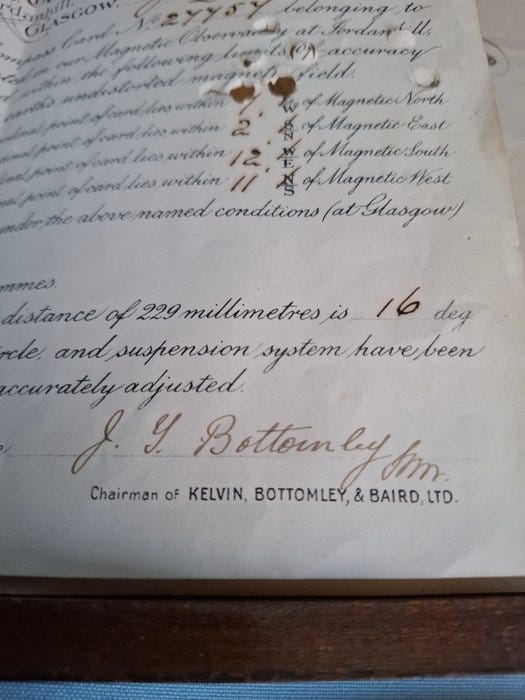 GLASGOW.
Card No 27757 belonging to
in our Magnetic Observatory at Jordanhill,
within the following limits (of) accuracy
earth's undistorted magnetic field.
point of card lies within W of Magnetic North
point of card lies within 2 ' N of Magnetic East
point of card lies within 12 ' W E of Magnetic South
point of card lies within 11 ' N S of Magnetic West
under the above named conditions (at Glasgow)
distance of 229 millimetres is 16 deg
and suspension system have been
accurately adjusted.
J. T. Bottomley
Chairman of KELVIN, BOTTOMLEY, & BAIRD, LTD.